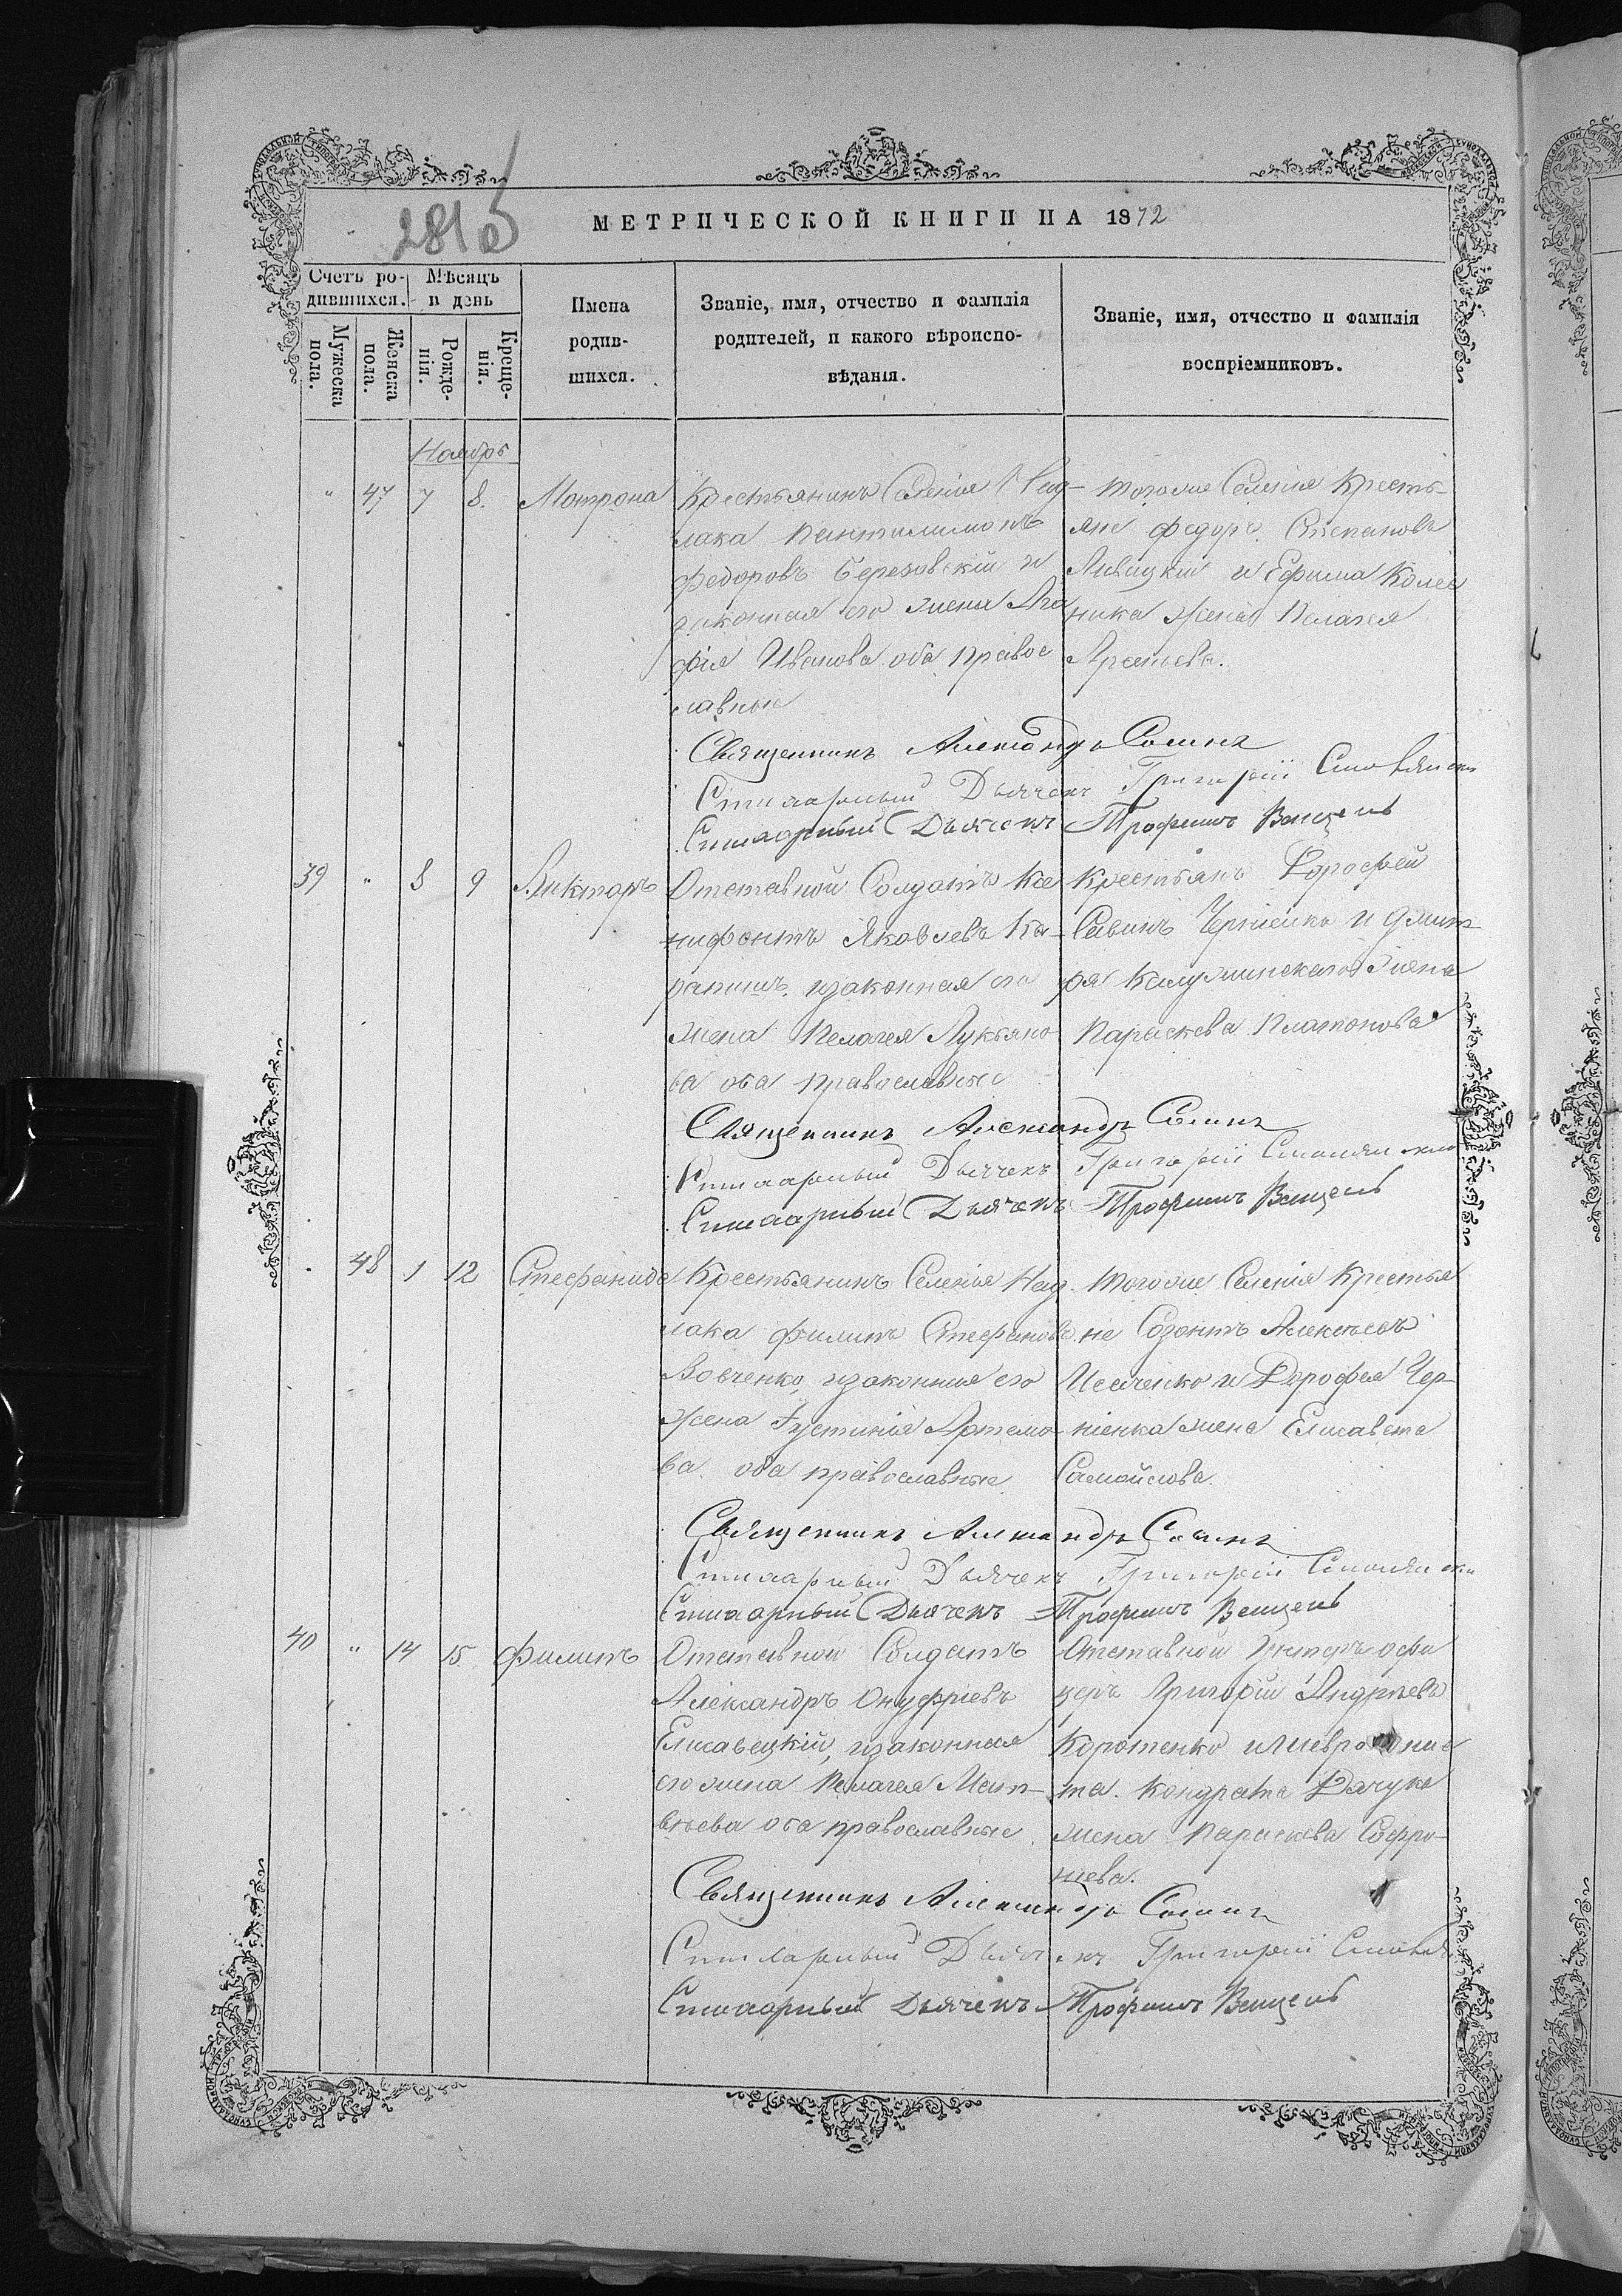 281об
МЕТРИЧЕСКОЙ КНИГИ НА 1872
Счетъ ро-
дившихся.
Мѣсяцъ
и день
Мужеска
пола.
Женска
пола.
Рожде-
нія.
Креще-
нія.
Имена
родив-
шихся.
Званіе, имя, отчество и фамилія
родителей, и какого вѣроиспо-
вѣданія.
Званіе, имя, отчество и фамилія
воспріемниковъ.
Ноябрь
" 47 7 8. Мотрона
Крестьянинъ Селенія Над-
лака Пантилимонъ
Федоровъ Березовскій и
законная его жена Ага
фія Иванова оба правос
лавные
Тогоже Селенія Кресть-
яне Федоръ Степановъ
Ливицкій и Ефима Колес
ника жена Пелагея
Священникъ Александръ
Стихарный Дьячекъ Григорій
Стихарный Дьячекъ Трофимъ Венцель
39 " 8 9 Викторъ
Отставной Солдатъ Ксе
нифонтъ Яковлевъ Ка-
рапишъ, изаконная его
жена Пелагея Лукьяно
ва оба православные
Крестьянъ Дорофей
Савинъ Чернienко и Дмит-
рія жена
Параскева Платонова
Священникъ Александръ
Стихарный Дьячекъ Григорій
Стихарный Дьячекъ Трофимъ Венцель
48 1 12 Стефанида
Крестьянинъ Селенія Над
лака Филипъ Стефановъ
Вовченко, изаконная его
жена Іустинія Артемо-
ва оба православные
Тогоже Селенія Крестья
не Созонтъ Алексѣевъ
и Дорофея Чер-
ніенка жена Елисавета
Самойлова.
Священникъ Александръ
Стихарный Дьячекъ Григорій
Стихарный Дьячекъ Трофимъ Венцель
40 " 14 15 Филипъ
Отставной Солдатъ
Александръ Онуфріевъ
Елисавецкій, изаконная
его жена Пелагея Мат-
вѣева оба православные
Отставной Унтеръ офи
церъ Григорій Андреевъ
Коротенко
та. Кондрата Дячука
жена Параскева Софро-
ніева.
Священникъ Александръ
Стихарный Дьячекъ Григорій
Стихарный Дьячекъ Трофимъ Венцель